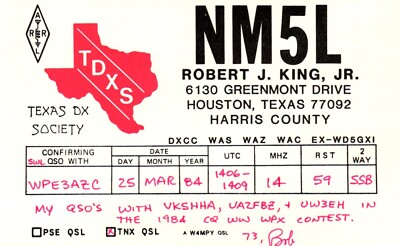 A
R R
L
TDXS
TEXAS DX
SOCIETY
NM5L
ROBERT J. KING, JR.
6130 GREENMONT DRIVE
HOUSTON, TEXAS 77092
HARRIS COUNTY
DXCC WAS WAZ WAC EX-WD5GXI
CONFIRMING
SWL QSO WITH
DATE
DAY MONTH YEAR
UTC
MHZ
RST
2
WAY
WPE3AZC 25 MAR 84 1406-
1409 14 59 SSB
MY QSO'S WITH VK5HHA, UA2FBZ, & UW3EH IN
THE 1984 CQ WW WPX CONTEST.
PSE QSL TNX QSL A W4MPY QSL 73, Bob